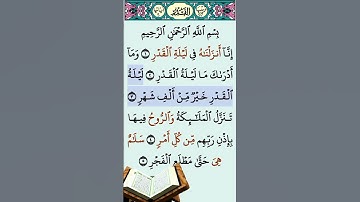 القدر
بِسْمِ ٱللَّهِ ٱلرَّحْمَٰنِ ٱلرَّحِيمِ
إِنَّآ أَنزَلْنَٰهُ فِى لَيْلَةِ ٱلْقَدْرِ ۝١ وَمَآ
أَدْرَىٰكَ مَا لَيْلَةُ ٱلْقَدْرِ ۝٢ لَيْلَةُ
ٱلْقَدْرِ خَيْرٌ مِّنْ أَلْفِ شَهْرٍ ۝٣
تَنَزَّلُ ٱلْمَلَٰٓئِكَةُ وَٱلرُّوحُ فِيهَا
بِإِذْنِ رَبِّهِم مِّن كُلِّ أَمْرٍ ۝٤ سَلَٰمٌ
هِىَ حَتَّىٰ مَطْلَعِ ٱلْفَجْرِ ۝٥